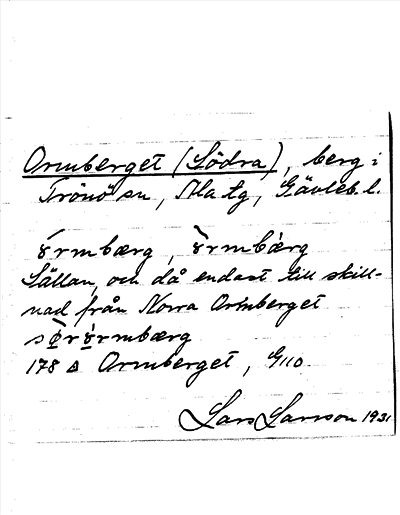 Ormberget (Södra), berg i
Trönö sn, Ala tg, Gävleb. l.
Sällan, och då endast till skill-
nad från Norra Ormberget
178 Δ Ormberget, G110.
Lars Larsson 1931